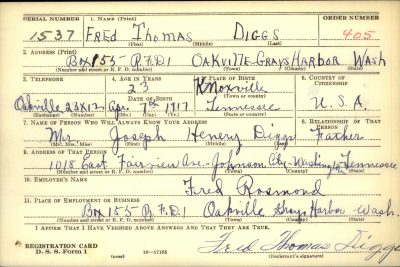 SERIAL NUMBER 1. NAME (Print) ORDER NUMBER
1537 FRED THOMAS DIGGS 405
(First) (Middle) (Last)
2. ADDRESS (Print)
BOX 155 R.F.D1 OAKVILLE GRAYS HARBOR WASH
(Number and street or R. F. D. number) (Town) (County) (State)
3. TELEPHONE 4. AGE IN YEARS 5. PLACE OF BIRTH 6. COUNTRY OF CITIZENSHIP
23 Knoxville
DATE OF BIRTH (Town or county)
Oakville 23X12 Apr. 7th 1917 Tennessee U.S.A.
(Exchange) (Number) (Mo.) (Day) (Yr.) (State or country)
7. NAME OF PERSON WHO WILL ALWAYS KNOW YOUR ADDRESS 8. RELATIONSHIP OF THAT PERSON
Mr. Joseph Henery Diggs Father
(Mr., Mrs., Miss) (First) (Middle) (Last)
9. ADDRESS OF THAT PERSON
1018 East Fairview Ave. Johnson City Washington Tennessee
(Number and street or R. F. D. number) (Town) (County) (State)
10. EMPLOYER'S NAME
Fred Rosmond
11. PLACE OF EMPLOYMENT OR BUSINESS
Box 155 R.F.D.1 Oakville Grays Harbor Wash.
(Number and street or R. F. D. number) (Town) (County) (State)
I AFFIRM THAT I HAVE VERIFIED ABOVE ANSWERS AND THAT THEY ARE TRUE.
REGISTRATION CARD
D. S. S. Form 1 16—17105 Fred Thomas Diggs
(over) (Registrant's signature)